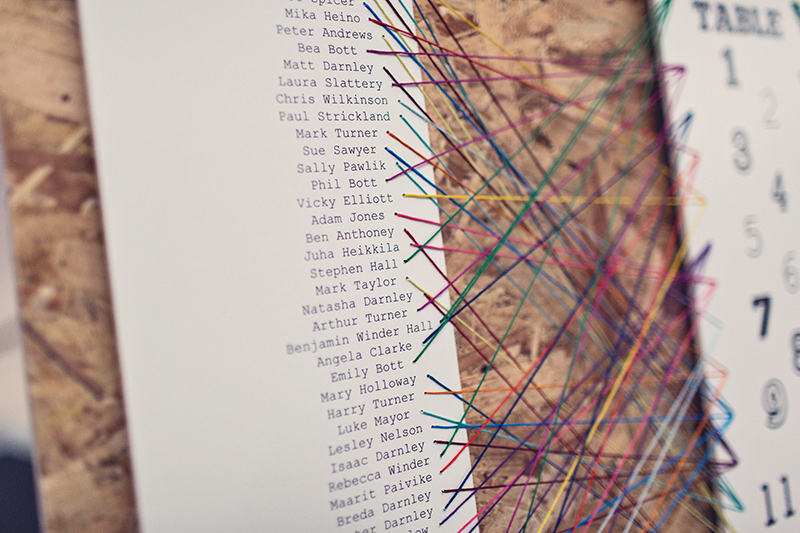 Spicer
Mika Heino
Peter Andrews
Bea Bott
Matt Darnley
Laura Slattery
Chris Wilkinson
Paul Strickland
Mark Turner
Sue Sawyer
Sally Pawlik
Phil Bott
Vicky Elliott
Adam Jones
Ben Anthoney
Juha Heikkila
Stephen Hall
Mark Taylor
Natasha Darnley
Arthur Turner
Benjamin Winder Hall
Angela Clarke
Emily Bott
Mary Holloway
Harry Turner
Luke Mayor
Lesley Nelson
Isaac Darnley
Rebecca Winder
Maarit Paivike
Breda Darnley
Darnley
TABLE
1
2
3
4
5
6
7
8
9
11